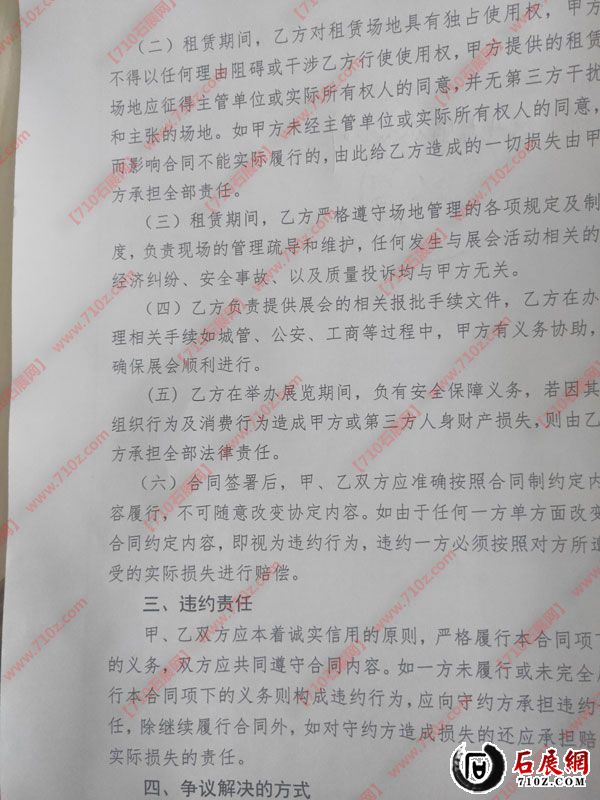 （二）租赁期间，乙方对租赁场地具有独占使用权，甲方
不得以任何理由阻碍或干涉乙方行使使用权，甲方提供的租赁
场地应征得主管单位或实际所有权人的同意，并无第三方干扰
和主张的场地。如甲方未经主管单位或实际所有权人的同意，
而影响合同不能实际履行的，由此给乙方造成的一切损失由甲
方承担全部责任。
（三）租赁期间，乙方严格遵守场地管理的各项规定及制
度，负责现场的管理疏导和维护，任何发生与展会活动相关的
经济纠纷、安全事故、以及质量投诉均与甲方无关。
（四）乙方负责提供展会的相关报批手续文件，乙方在办
理相关手续如城管、公安、工商等过程中，甲方有义务协助，
确保展会顺利进行。
（五）乙方在举办展览期间，负有安全保障义务，若因其
组织行为及消费行为造成甲方或第三方人身财产损失，则由乙
方承担全部法律责任。
（六）合同签署后，甲、乙双方应准确按照合同制约定内
容履行，不可随意改变协定内容。如由于任何一方单方面改变
合同约定内容，即视为违约行为，违约一方必须按照对方所遭
受的实际损失进行赔偿。
三、违约责任
甲、乙双方应本着诚实信用的原则，严格履行本合同项下
的义务，双方应共同遵守合同内容。如一方未履行或未完全
行本合同项下的义务则构成违约行为，应向守约方承担违约
任，除继续履行合同外，如对守约方造成损失的还应承担赔
实际损失的责任。
四、争议解决的方式
【710石展网】
www.710z.com
石展網
710Z.COM